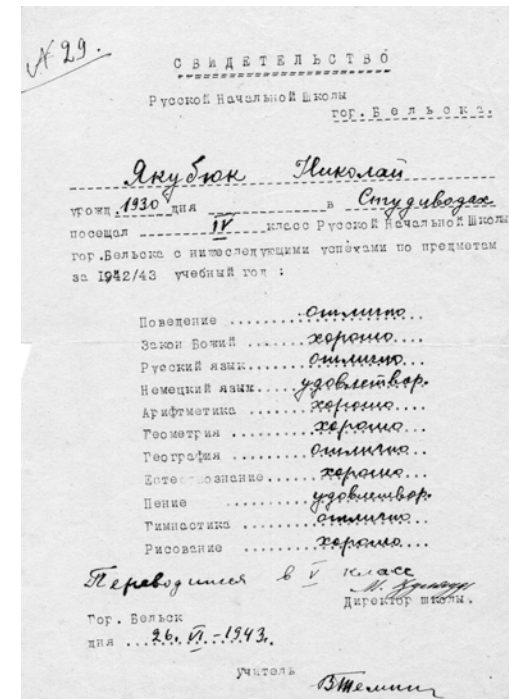 № 29.
СВИДЕТЕЛЬСТВО
Русской Начальной Школы
гор. Бельска.
Якубюк Николай
урожд. 1930 дня в Студиводах
посещал IV класс Русской Начальной Школы
гор. Бельска с нижеследующими успехами по предметам
за 1942/43 учебный год :
Поведение ........ отлично
Закон Божий ....... хорошо
Русский язык....... отлично
Немецкий язык..... удовлетвор.
Арифметика ....... хорошо....
Геометрия ........ хорошо....
География ........ отлично...
Естествознание.... хорошо...
Пение удовлетвор.
Гимнастика ....... отлично..
Рисование ........ хорошо...
Переводится в V класс
Директор школы.
Гор. Бельск
дня ...26. VI - 1943.
учитель